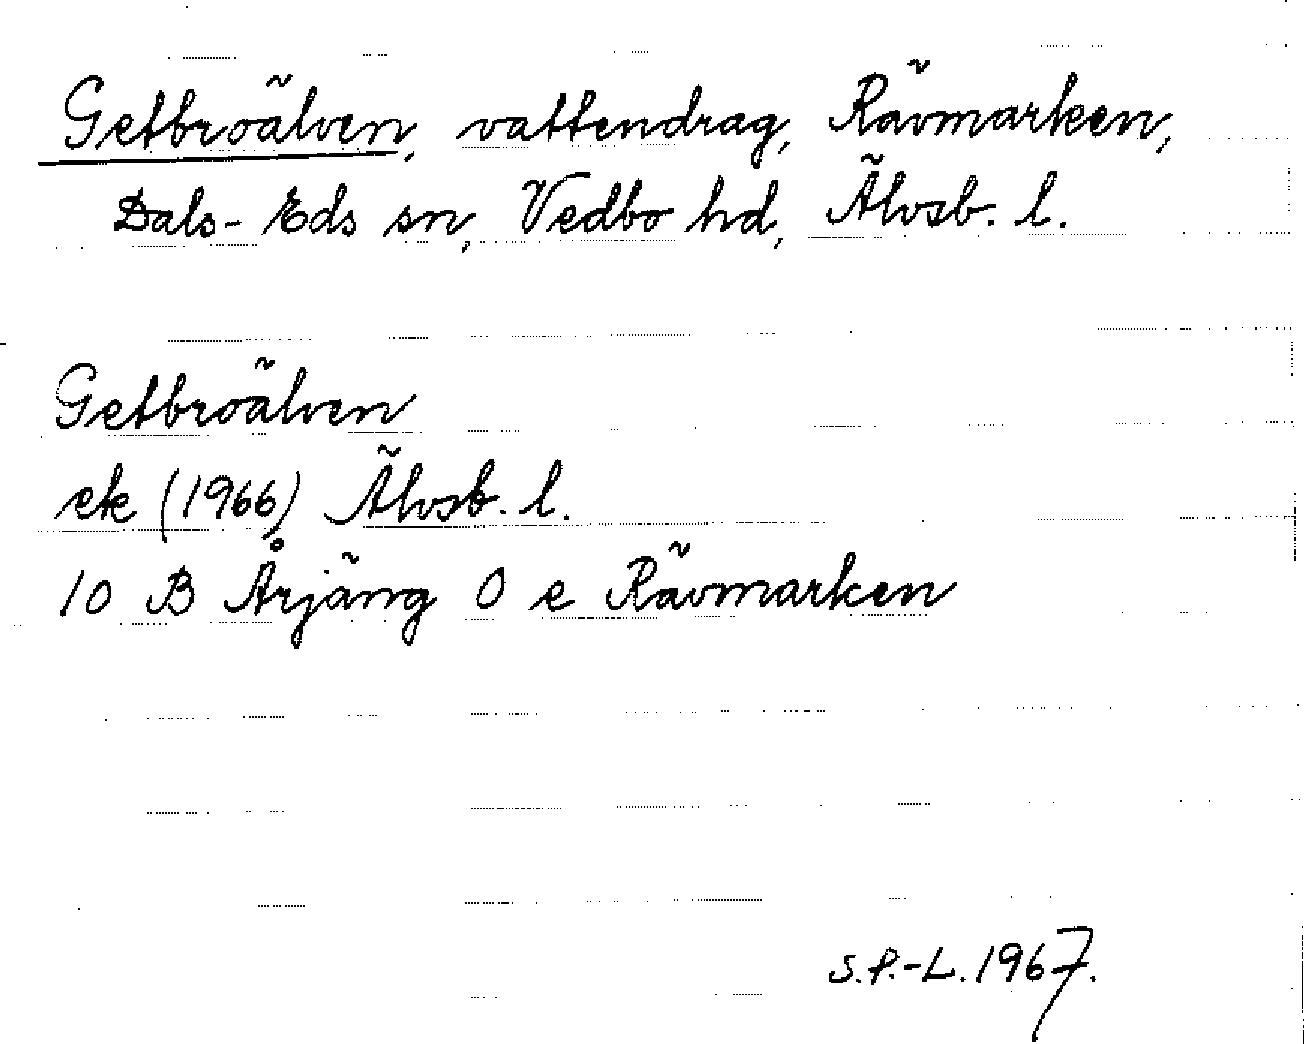 Getbroälven, vattendrag, Rävmarken,
Dals-Eds sn, Vedbo hd, Älvsb. l.
Getbroälven
ek (1966) Älvsb. l.
10 B Årjäng O e Rävmarken
S.P.-L. 1967.